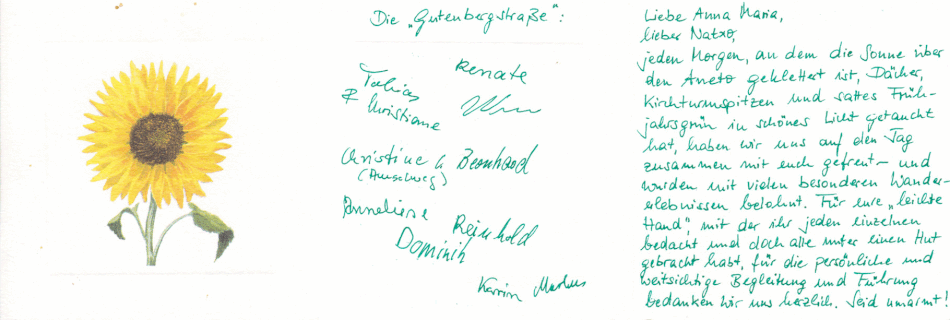 Die „Gutenbergstraße":
Renate
Tobias
& Christiane
Christine & Bernhard
Anneliese
Reinhold
Dominik
Karin Markus
Liebe Anna Maria,
lieber Natxo,
jeden Morgen, an dem die Sonne über
den Aneto geklettert ist, Dächer,
Kirchturmspitzen und sattes Früh-
jahrsgrün in schönes Licht getaucht
hat, haben wir uns auf den Tag
zusammen mit euch gefreut – und
wurden mit vielen besonderen Wander-
erlebnissen belohnt. Für eure „leichte
Hand", mit der ihr jeden einzelnen
bedacht und doch alle unter einen Hut
gebracht habt, für die persönliche und
weitsichtige Begleitung und Führung
bedanken wir uns herzlich. Seid umarmt!